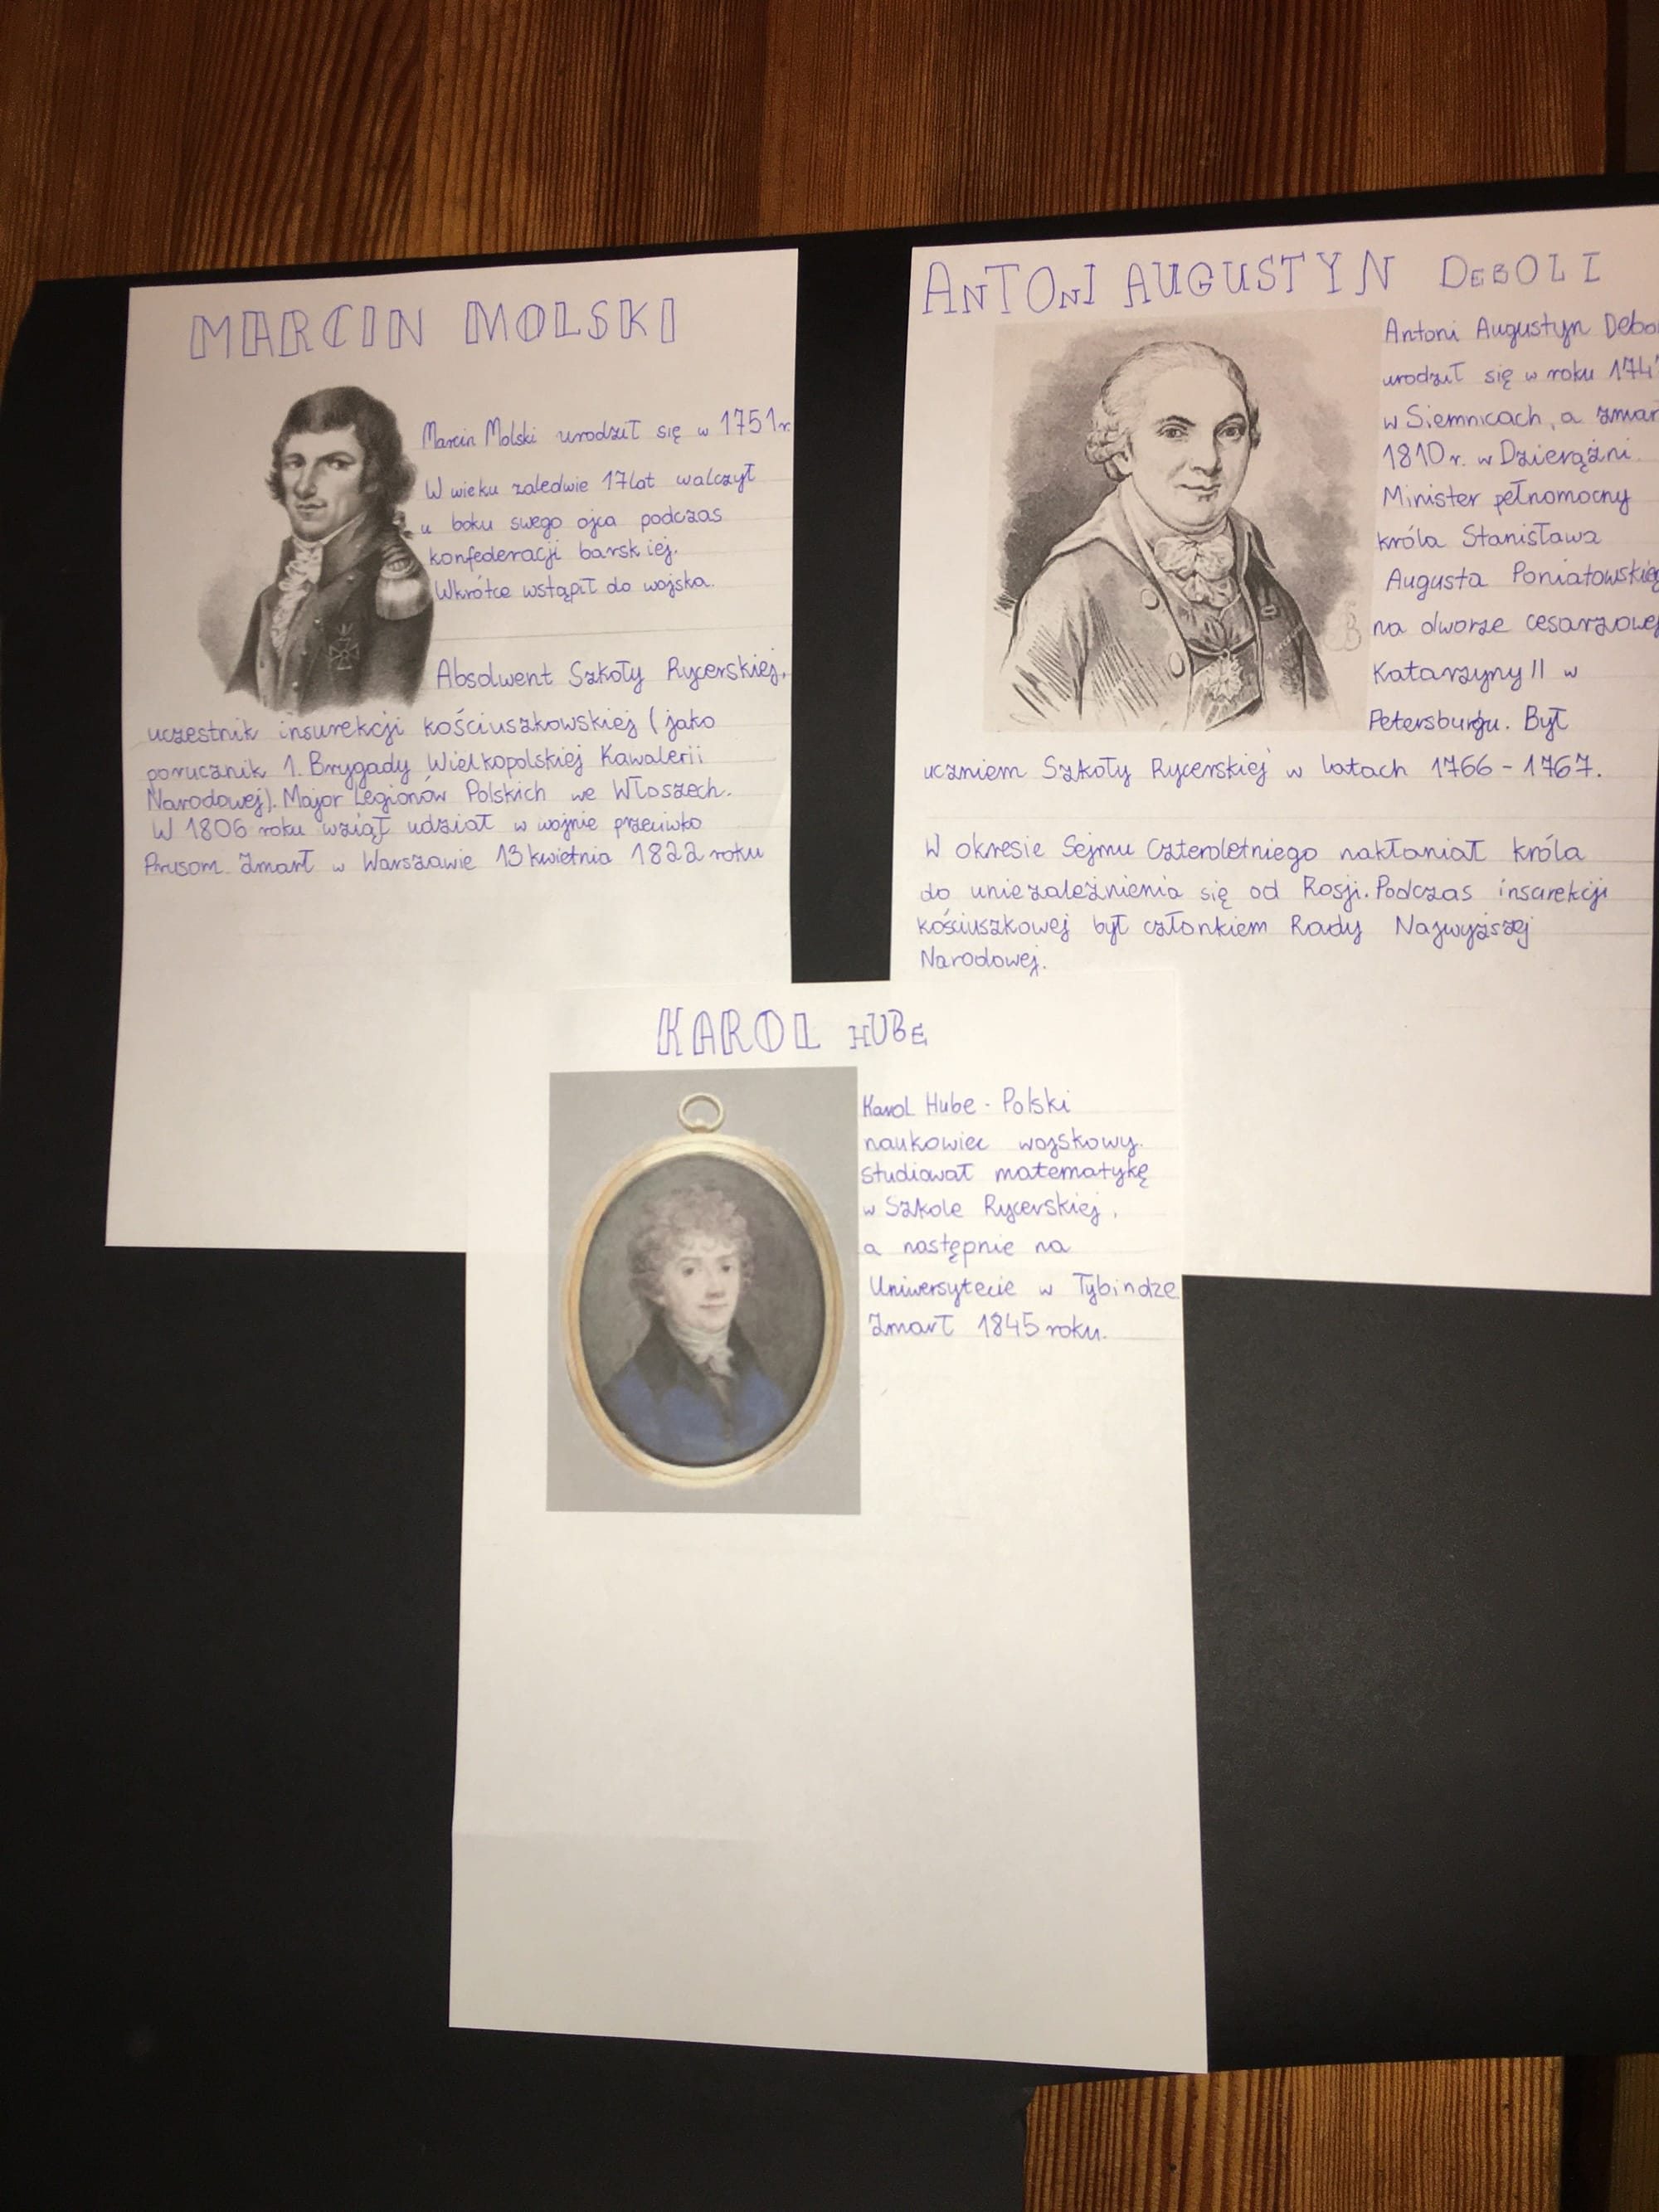 MARCIN MOLSKI
Marcin Molski urodził się w 1751r.
W wieku zaledwie 17lat walczył
u boku swego ojca podczas
konfederacji barskiej.
Wkrótce wstąpił do wojska.
Absolwent Szkoły Rycerskiej,
uczestnik insurekcji kościuszkowskiej (jako
porucznik 1. Brygady Wielkopolskiej Kawalerii
Narodowej). Major Legionów Polskich we Włoszech.
W 1806 roku wziął udział w wojnie przeciwko
Prusom. Zmarł w Warszawie 13 kwietnia 1822 roku
ANTONI AUGUSTYN DEBOLI
Antoni Augustyn Debo
urodził się w roku 174
w Siemnicach, a zmar
1810 r. w Dzierążni.
Minister pełnomocny
króla Stanisława
Augusta Poniatowskieg
na dworze cesarzowej
Katarzyny II w
Petersburgu. Był
uczniem Szkoły Rycerskiej w latach 1766-1767.
W okresie Sejmu Czteroletniego nakłaniał króla
do uniezależnienia się od Rosji. Podczas insurekcji
kościuszkowej był członkiem Rady Najwyższej
Narodowej.
KAROL HUBE
Karol Hube - Polski
naukowiec wojskowy.
studiował matematykę
w Szkole Rycerskiej,
a następnie na
Uniwersytecie w Tybindze
Zmarł 1845 roku.